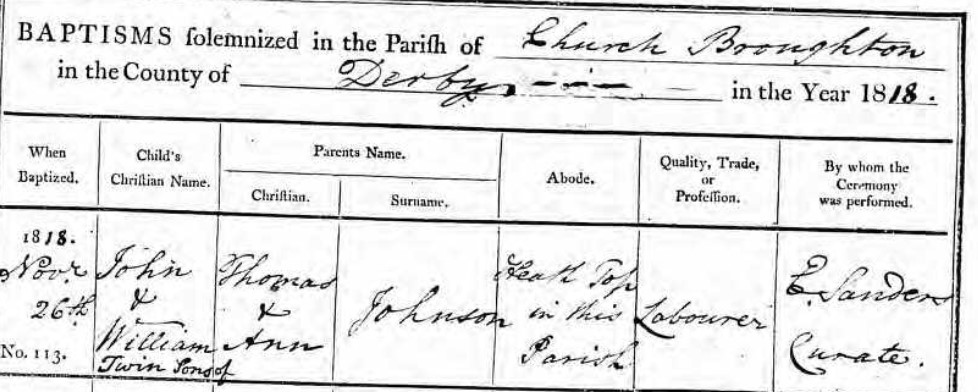 BAPTISMS solemnized in the Parish of Church Broughton
in the County of Derby. in the Year 1818.
When Baptized.
Child's Christian Name.
Parents Name.
Christian.
Surname.
Abode.
Quality, Trade, or Profession.
By whom the Ceremony was performed.
1818.
Novr.
26th
No. 113.
John
&
William
Twin Sons of
Thomas
&
Ann
Johnson
Heath Top
in this
Parish
Labourer
E. Sanders
Curate.